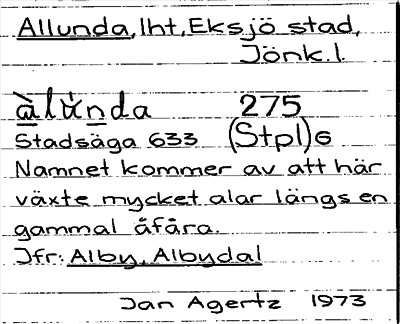 Allunda, lht, Eksjö stad,
Jönk. l.
àlúnda 275
Stadsäga 633 (Stpl)6
Namnet kommer av att här
växte mycket alar längs en
gammal åfåra.
Jfr: Alby, Albydal
Jan Agertz 1973